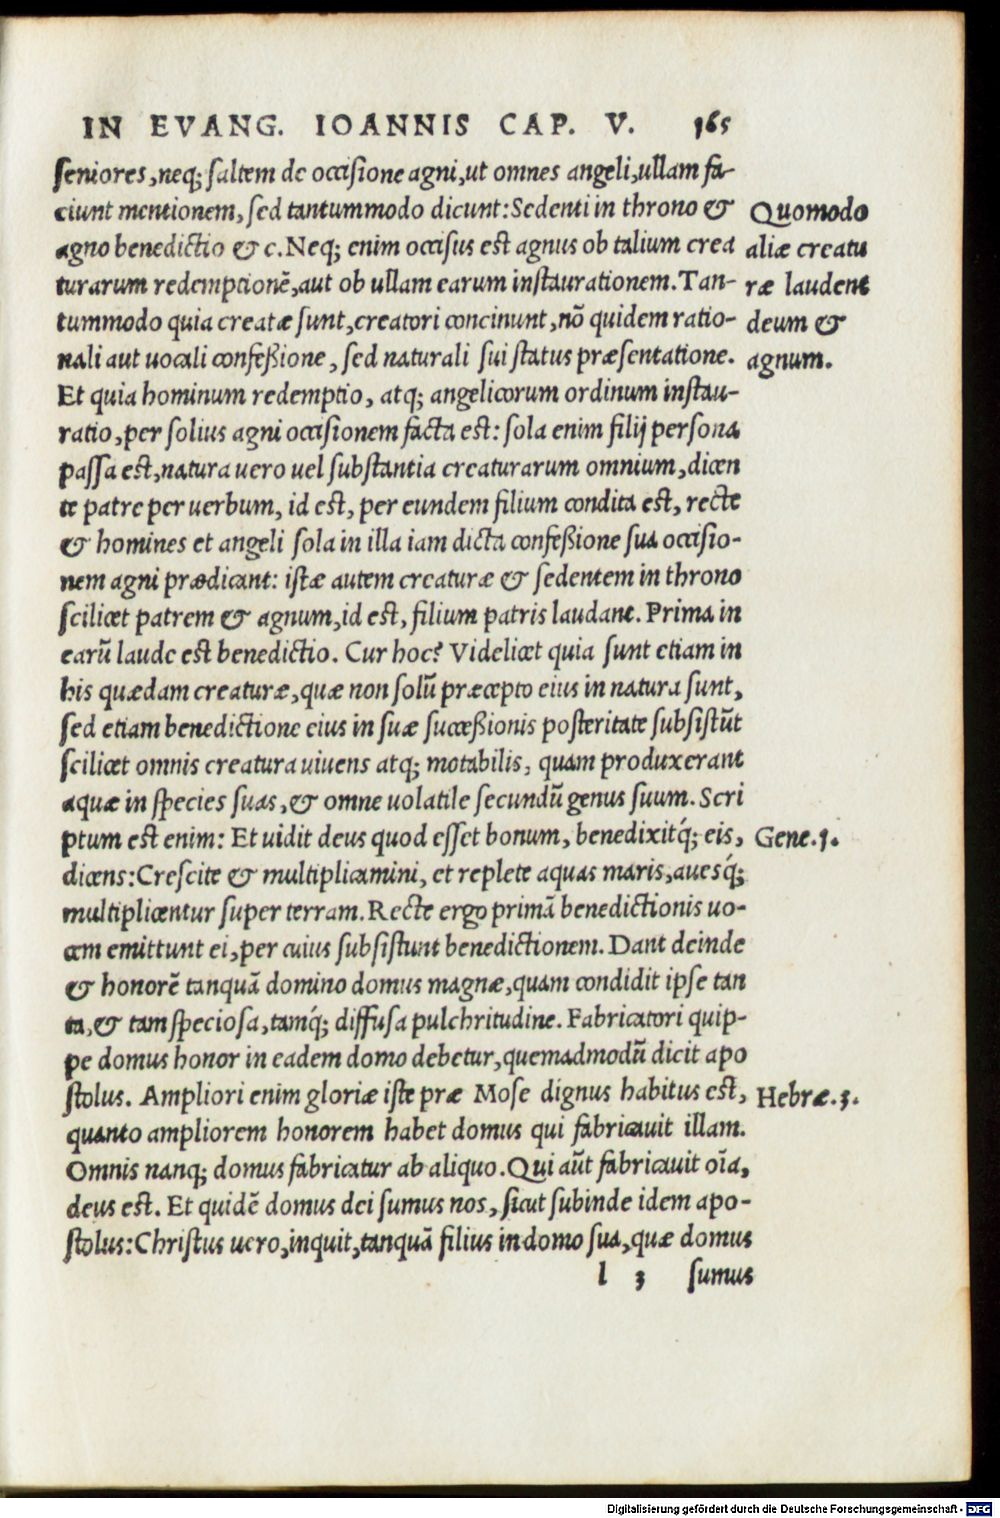 IN EVANG. IOANNIS CAP. V. 165
seniores, neq; saltem de occisione agni, ut omnes angeli, ullam fa-
ciunt mentionem, sed tantummodo dicunt: Sedenti in throno &
agno benedictio & c. Neq; enim occisus est agnus ob talium crea
turarum redemptionē, aut ob ullam earum instaurationem. Tan-
tummodo quia creatæ sunt, creatori concinunt, nō quidem ratio-
nali aut uocali confeßione, sed naturali sui status præsentatione.
Quomodo
aliæ creatu
ræ laudent
deum &
agnum.
Et quia hominum redemptio, atq; angelicorum ordinum instau-
ratio, per solius agni occisionem facta est: sola enim filij persona
passa est, natura uero uel substantia creaturarum omnium, dicen
te patre per uerbum, id est, per eundem filium condita est, recte
& homines et angeli sola in illa iam dicta confeßione sua occisio-
nem agni prædicant: istæ autem creaturæ & sedentem in throno
scilicet patrem & agnum, id est, filium patris laudant. Prima in
earū laude est benedictio. Cur hoc? Videlicet quia sunt etiam in
his quædam creaturæ, quæ non solū præcepto eius in natura sunt,
sed etiam benedictione eius in suæ succeßionis posteritate subsistūt
scilicet omnis creatura uiuens atq; motabilis, quam produxerant
aquæ in species suas, & omne uolatile secundū genus suum. Scri
ptum est enim: Et uidit deus quod esset bonum, benedixitq́; eis,
Gene.1.
dicens: Crescite & multiplicamini, et replete aquas maris, auesq́;
multiplicentur super terram. Recte ergo primā benedictionis uo-
cem emittunt ei, per cuius subsistunt benedictionem. Dant deinde
& honorē tanquā domino domus magnæ, quam condidit ipse tan
ta, & tam speciosa, tamq́; diffusa pulchritudine. Fabricatori quip-
pe domus honor in eadem domo debetur, quemadmodū dicit apo
stolus. Ampliori enim gloriæ iste præ Mose dignus habitus est,
Hebræ.3.
quanto ampliorem honorem habet domus qui fabricauit illam.
Omnis nanq; domus fabricatur ab aliquo. Qui aūt fabricauit oīa,
deus est. Et quidē domus dei sumus nos, sicut subinde idem apo-
stolus: Christus uero, inquit, tanquā filius in domo sua, quæ domus
l 3 sumus
Digitalisierung gefördert durch die Deutsche Forschungsgemeinschaft - DFG